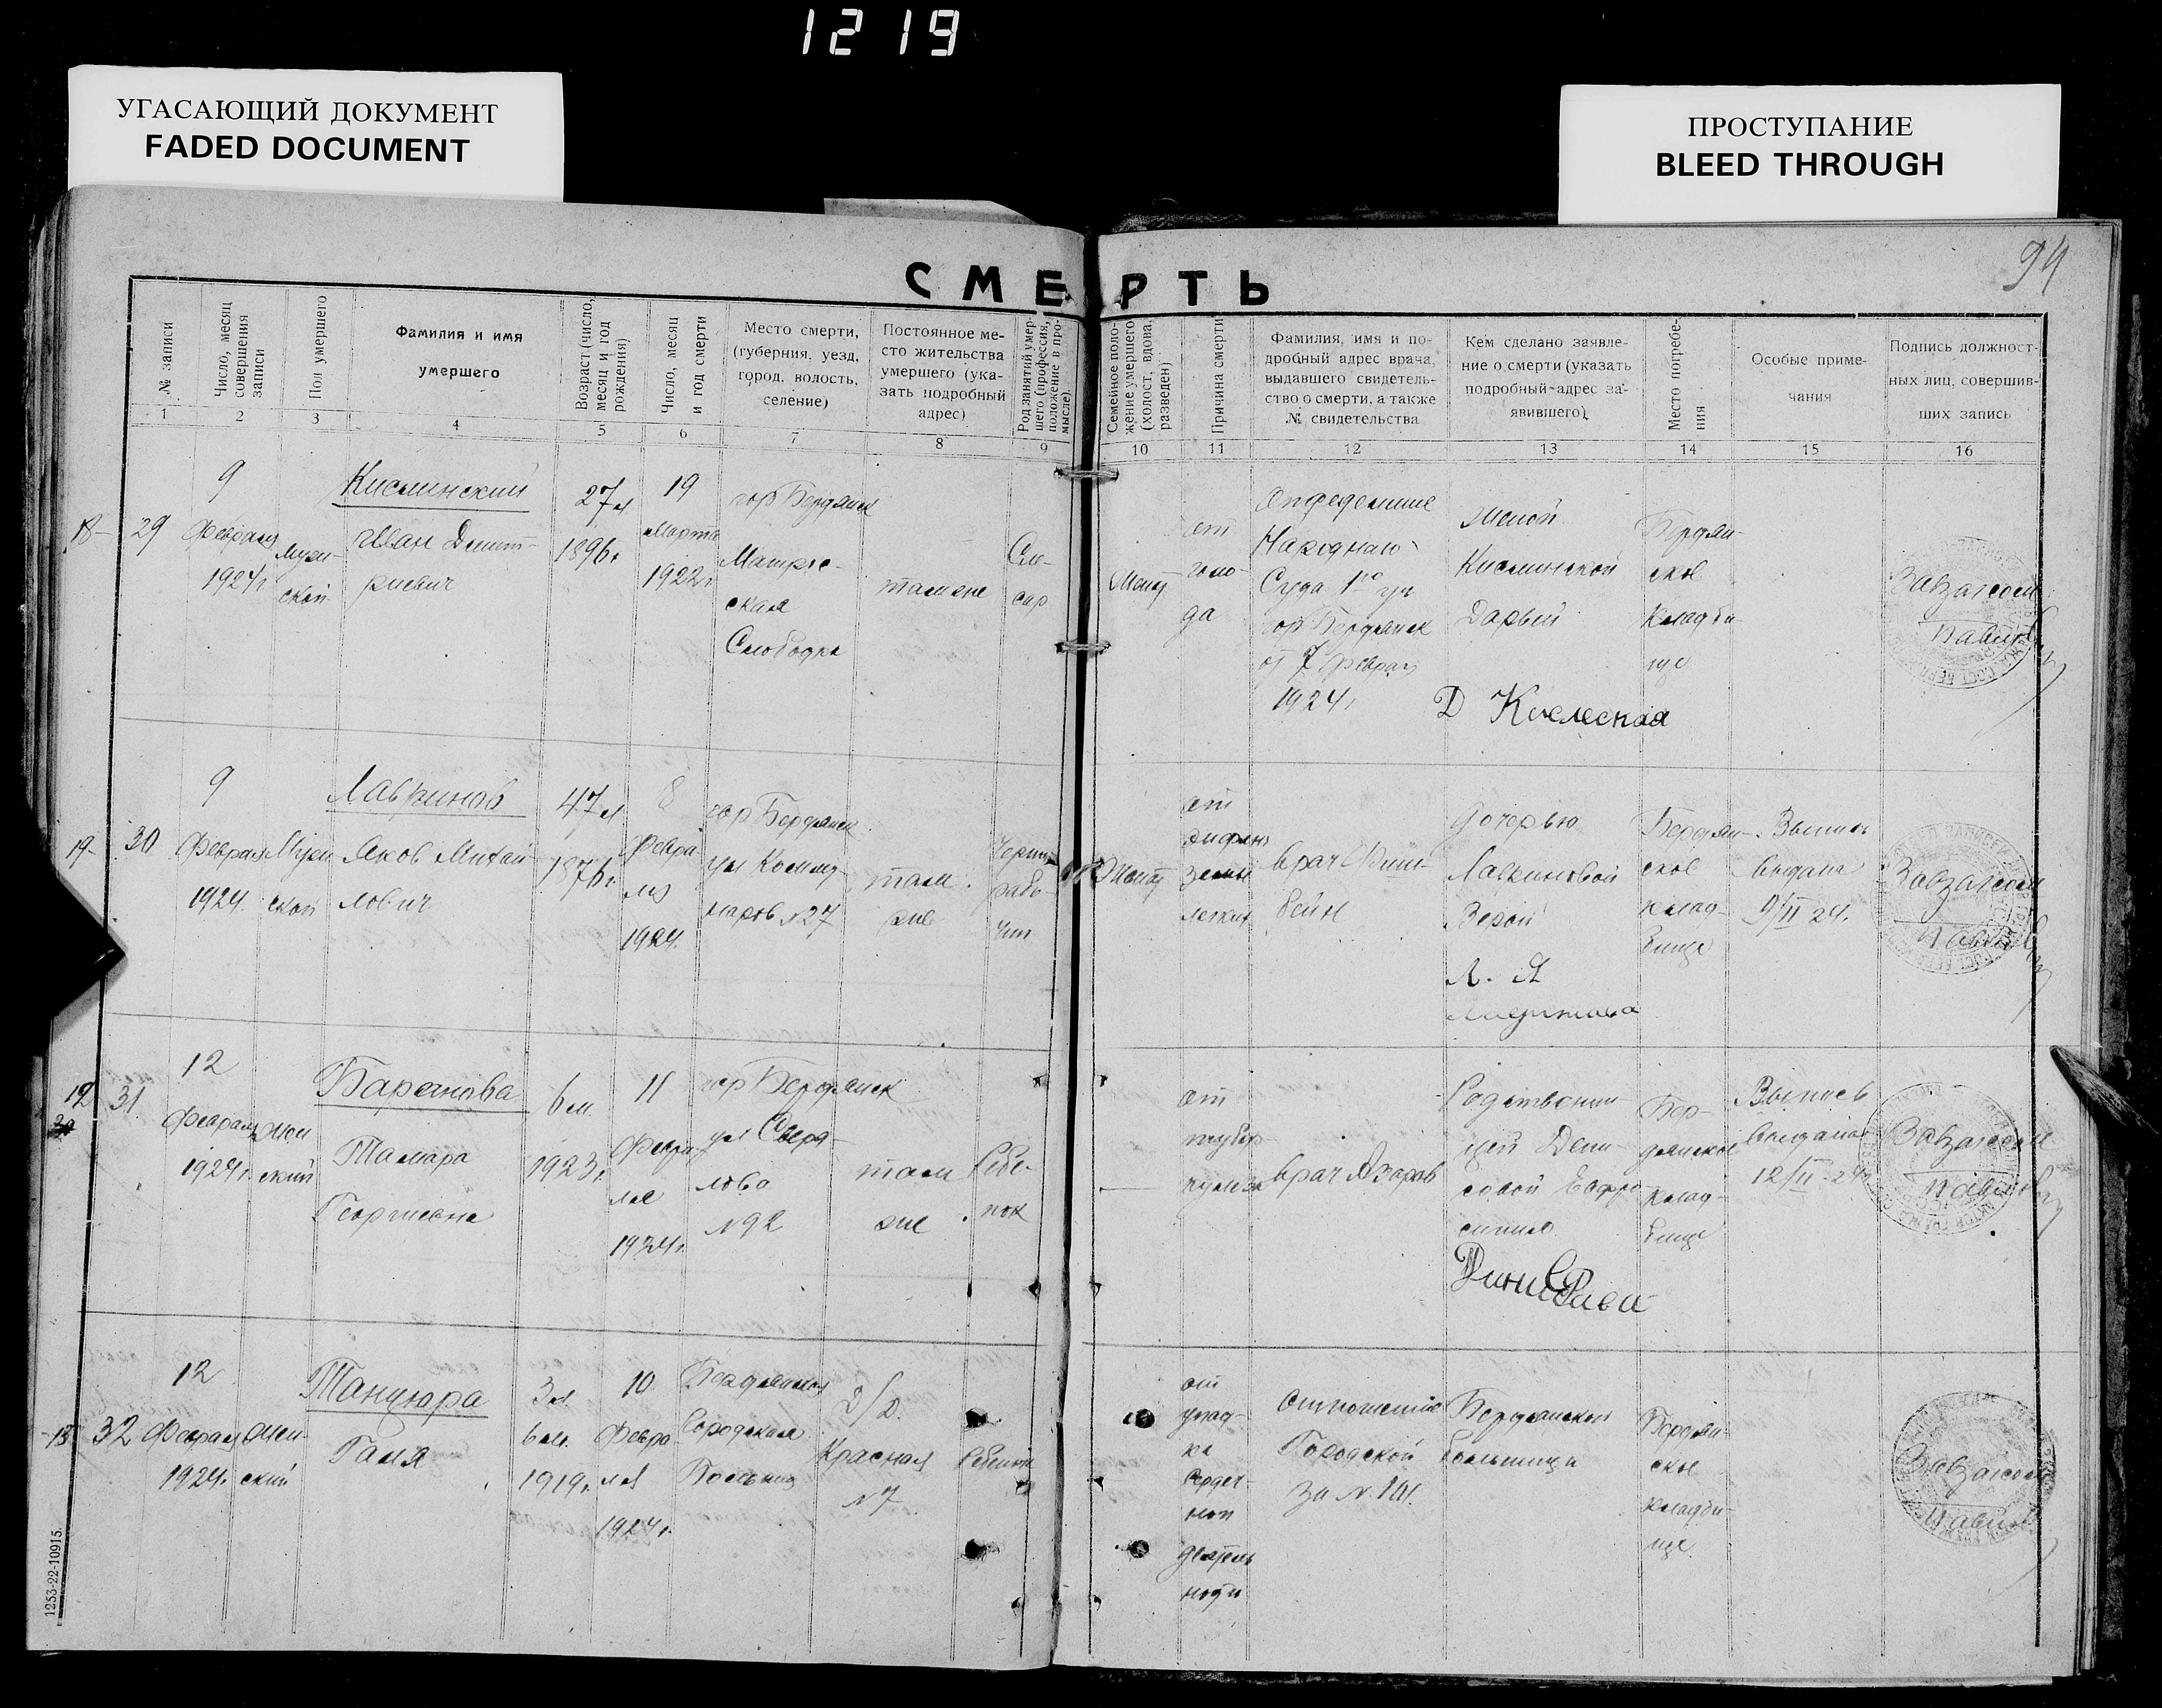 1219
УГАСАЮЩИЙ ДОКУМЕНТ
FADED DOCUMENT
ПРОСТУПАНИЕ
BLEED THROUGH
94
СМЕРТЬ
№ записи
Число, месяц
совершения
записи
Пол умершего
Фамилия и имя
умершего
Возраст (число,
месяц и год
рождения)
Число, месяц
и год смерти
Место смерти,
(губерния, уезд,
город, волость,
селение)
Постоянное ме-
сто жительства
умершего (ука-
зать подробный
адрес)
Род занятий умер-
шего (профессия,
положение в про-
мысле).
Семейное поло-
жение умершего
(холост, вдова,
разведен)
Причина смерти
Фамилия, имя и по-
дробный адрес врача,
выдавшего свидетель-
ство о смерти, а также
№ свидетельства
Кем сделано заявле-
ние о смерти (указать
подробный адрес за-
явившего)
Место погребе-
ния
Особые приме-
чания
Подпись должност-
ных лиц, совершив-
ших запись
1 2 3 4 5 6 7 8 9 10 11 12 13 14 15 16
18-
29
9
Февраля
1924г
Муж-
ской
Кислинский
Иван Дмит-
риевич
27 л
1896г
19
Марта
1922г
гор Бердянск
Матрос-
ская
Слободка
там же
Сто-
ляр
Женат
от
голо-
да
Определение
Народнаго
Суда 1го уч
гор Бердянск
от 7 Февраля
1924г
Женой
Кислинской
Дарьей
Бердян-
ское
кладби-
ще
Завзагсом
19-
30
9
Февраля
1924.
Мужской
Лавринов
Яков Михай-
лович
47 л
1876г.
8
Февра-
ля
1924.
гор Бердянск
ул Комму-
наров №27
там
же
Черно-
рабо-
чий
Женат
от
легких
врач
дочерью
Верой
Л. Я
Бердян-
ское
клад-
бище
Выпись
выдана
9/II 24.
Завзагсом
31
12
Февраля
1924г.
Жен
ский
Баранова
Тамара
Георгиевна
6 м.
1923г.
11
Февра-
ля
1924г.
гор Бердянск
ул Сверд-
лова
№92
там
же
Ребе-
нок
от
тубер-
кулеза
врач Азаров
Родственни-
цей Дени-
совой Евфро-
синией
Бер-
дянское
клад-
бище
Выпись
выдана
12/II-24
Завзагсом
32
12
Февраля
1924г.
Жен
ский
Танцюра
Галя
3 л.
6 м.
1919г.
10
Февра-
ля
1924г.
Бердянская
Городская
Больница
Д/Д.
Красная
№7
Ребенок
от
упад-
ка
сердеч-
ной
деятель-
ности
Отношение
Городской
За № 101.
Бердянской
больницы
Бердян-
ское
кладби-
ще
Завзагсом
1253-22-10915.